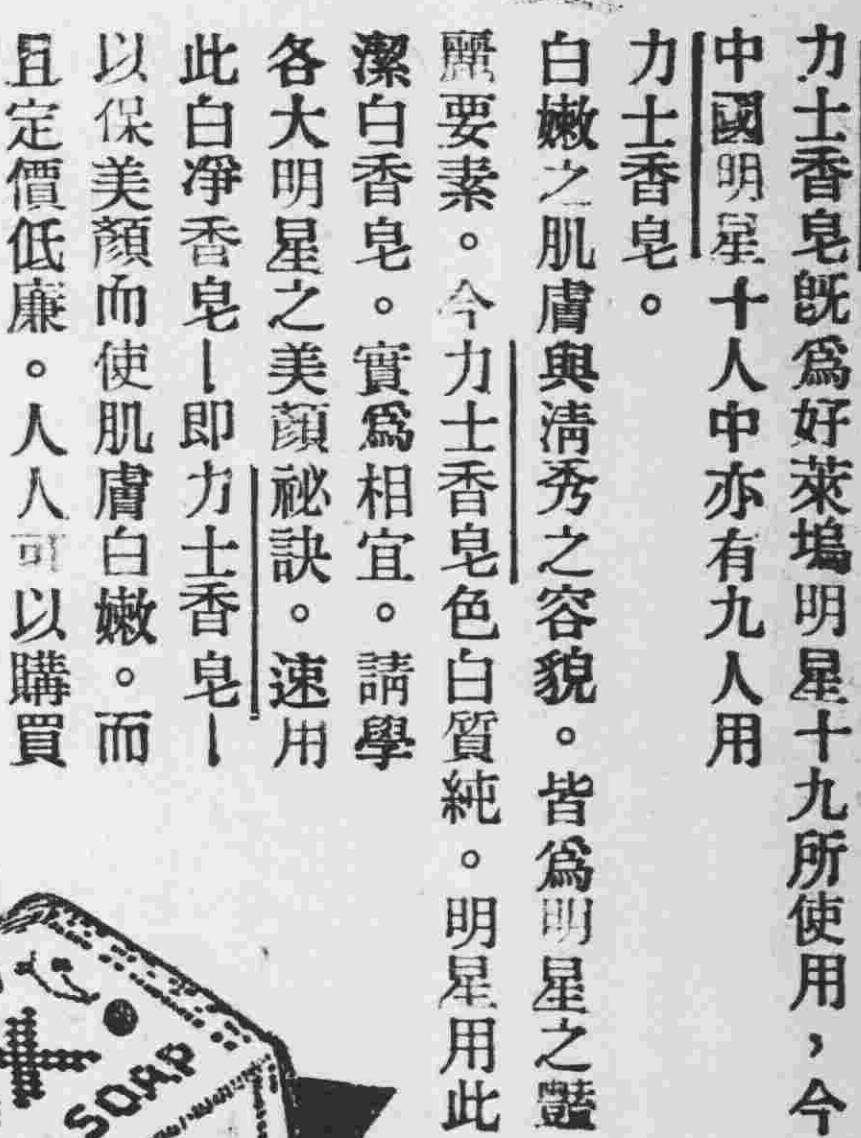 力士香皂旣爲好萊塢明星十九所使用，今
中國明星十人中亦有九人用
力士香皂。
白嫩之肌膚與清秀之容貌。皆爲明星之豔
麗要素。今力士香皂色白質純。明星用此
潔白香皂。實爲相宜。請學
各大明星之美顏祕訣。速用
此白淨香皂—即力士香皂—
以保美顏而使肌膚白嫩。而
且定價低廉。人人可以購買
SOAP